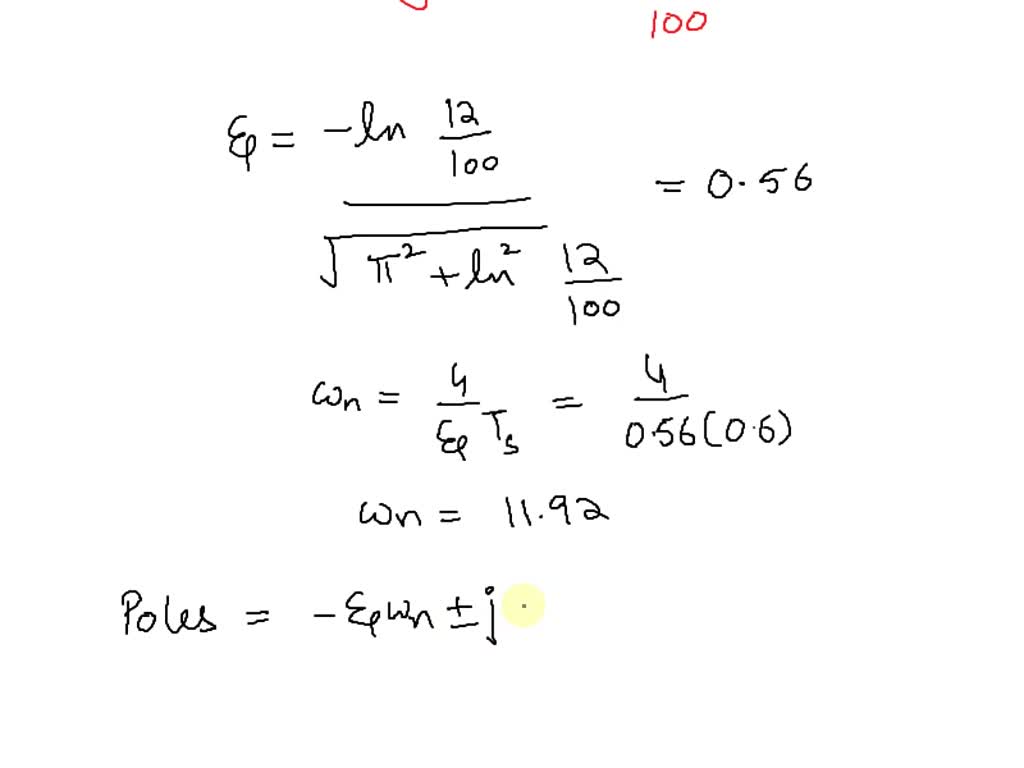 100
ξ = -ln 12/100 / √(π² + ln² 12/100) = 0.56
ωn = 4/(ξ Ts) = 4/(0.56(0.6))
ωn = 11.92
Poles = -ξωn ± j